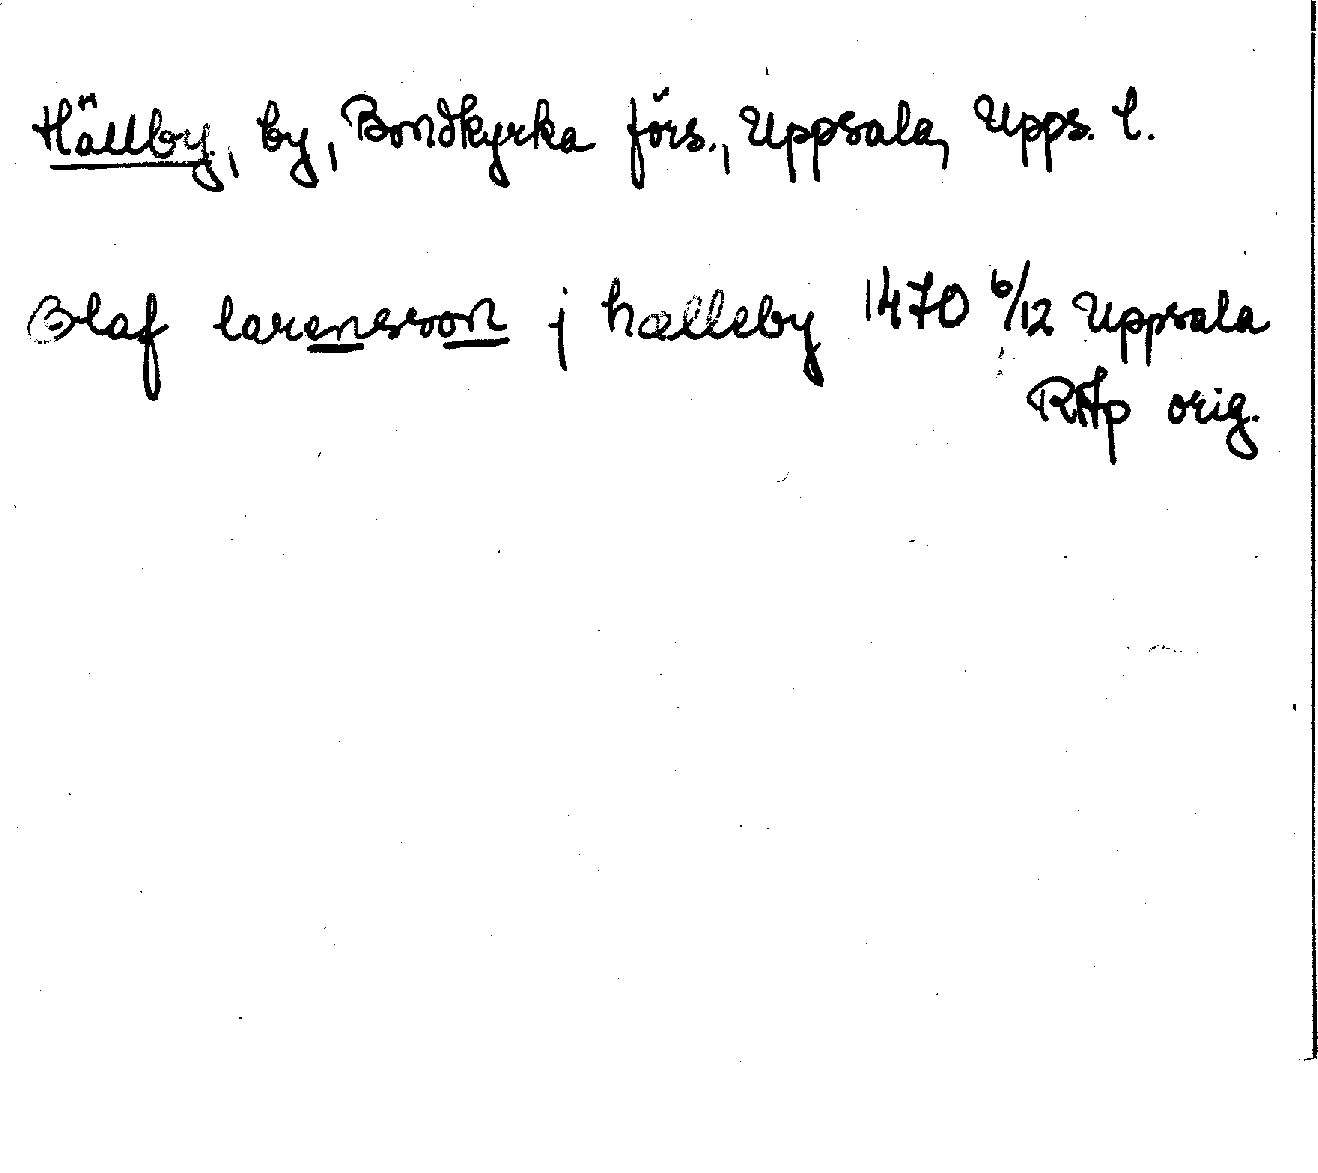 Hällby, by, Bondkyrka förs., Uppsala, Upps. l.
Olaf larensson j hælleby 1470 6/12 Uppsala
RAp orig.